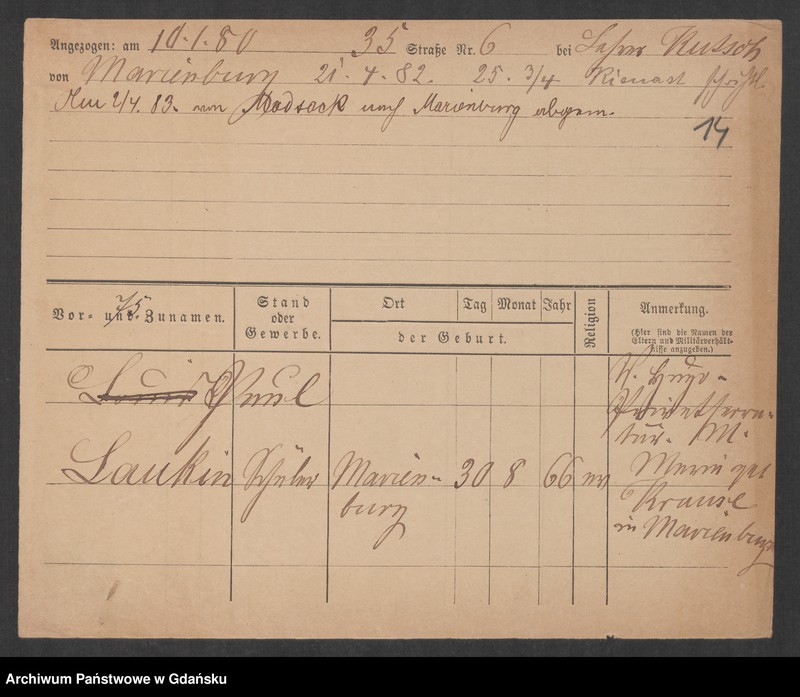 Angezogen: am 10.1.80 35 Straße Nr. 6 bei Lehrer Rutsch
von Marienburg 21.4.82. 25. 3/4 Rienast
Am 2/4.83. von Modsack nach Marienburg abgem.
14
75
Vor- und Zunamen. Stand oder Gewerbe. Ort Tag Monat Jahr der Geburt. Religion Anmerkung.
(Hier sind die Namen der Eltern und Militärverhältnisse anzugeben.)
Louis Paul
V. Hugo
Laukin Schüler Marien- 30 8 66 ev
burg
M.
Marie geb
Krause
in Marienburg
Archiwum Państwowe w Gdańsku